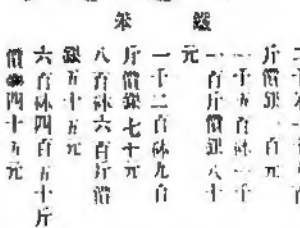 鐵笨
斤價銀 百元
一千五百砵一千
一百斤價銀八十
元
一千二百砵九百
斤價銀七十元
八百砵六百斤價
銀五十五元
六百砵四百五十斤
價銀四十五元